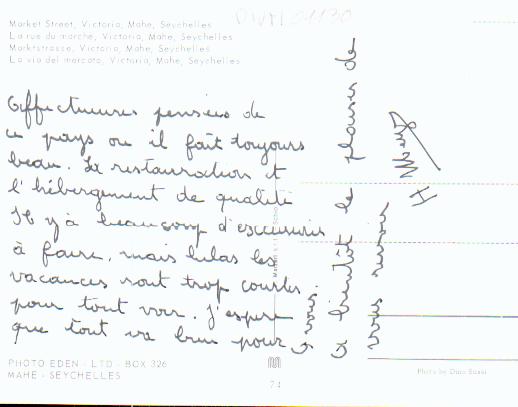 Market Street, Victoria, Mahe, Seychelles
La rue du marche, Victoria, Mahe, Seychelles
Marktstrasse, Victoria, Mahe, Seychelles
La via del mercato, Victoria, Mahe, Seychelles
Affectueuses pensées de
ce pays ou il fait toujours
beau. La restauration et
l'hébergement de qualité
Il y à beaucoup d'excursions
à faire, mais helas les
vacances sont trop courtes
pour tout voir. J'espère
que tout va bien pour
vous.
a bientôt le plaisir de
vous revoir
PHOTO EDEN - LTD - BOX 326
MAHE - SEYCHELLES
74
Photo by Dino Sassi